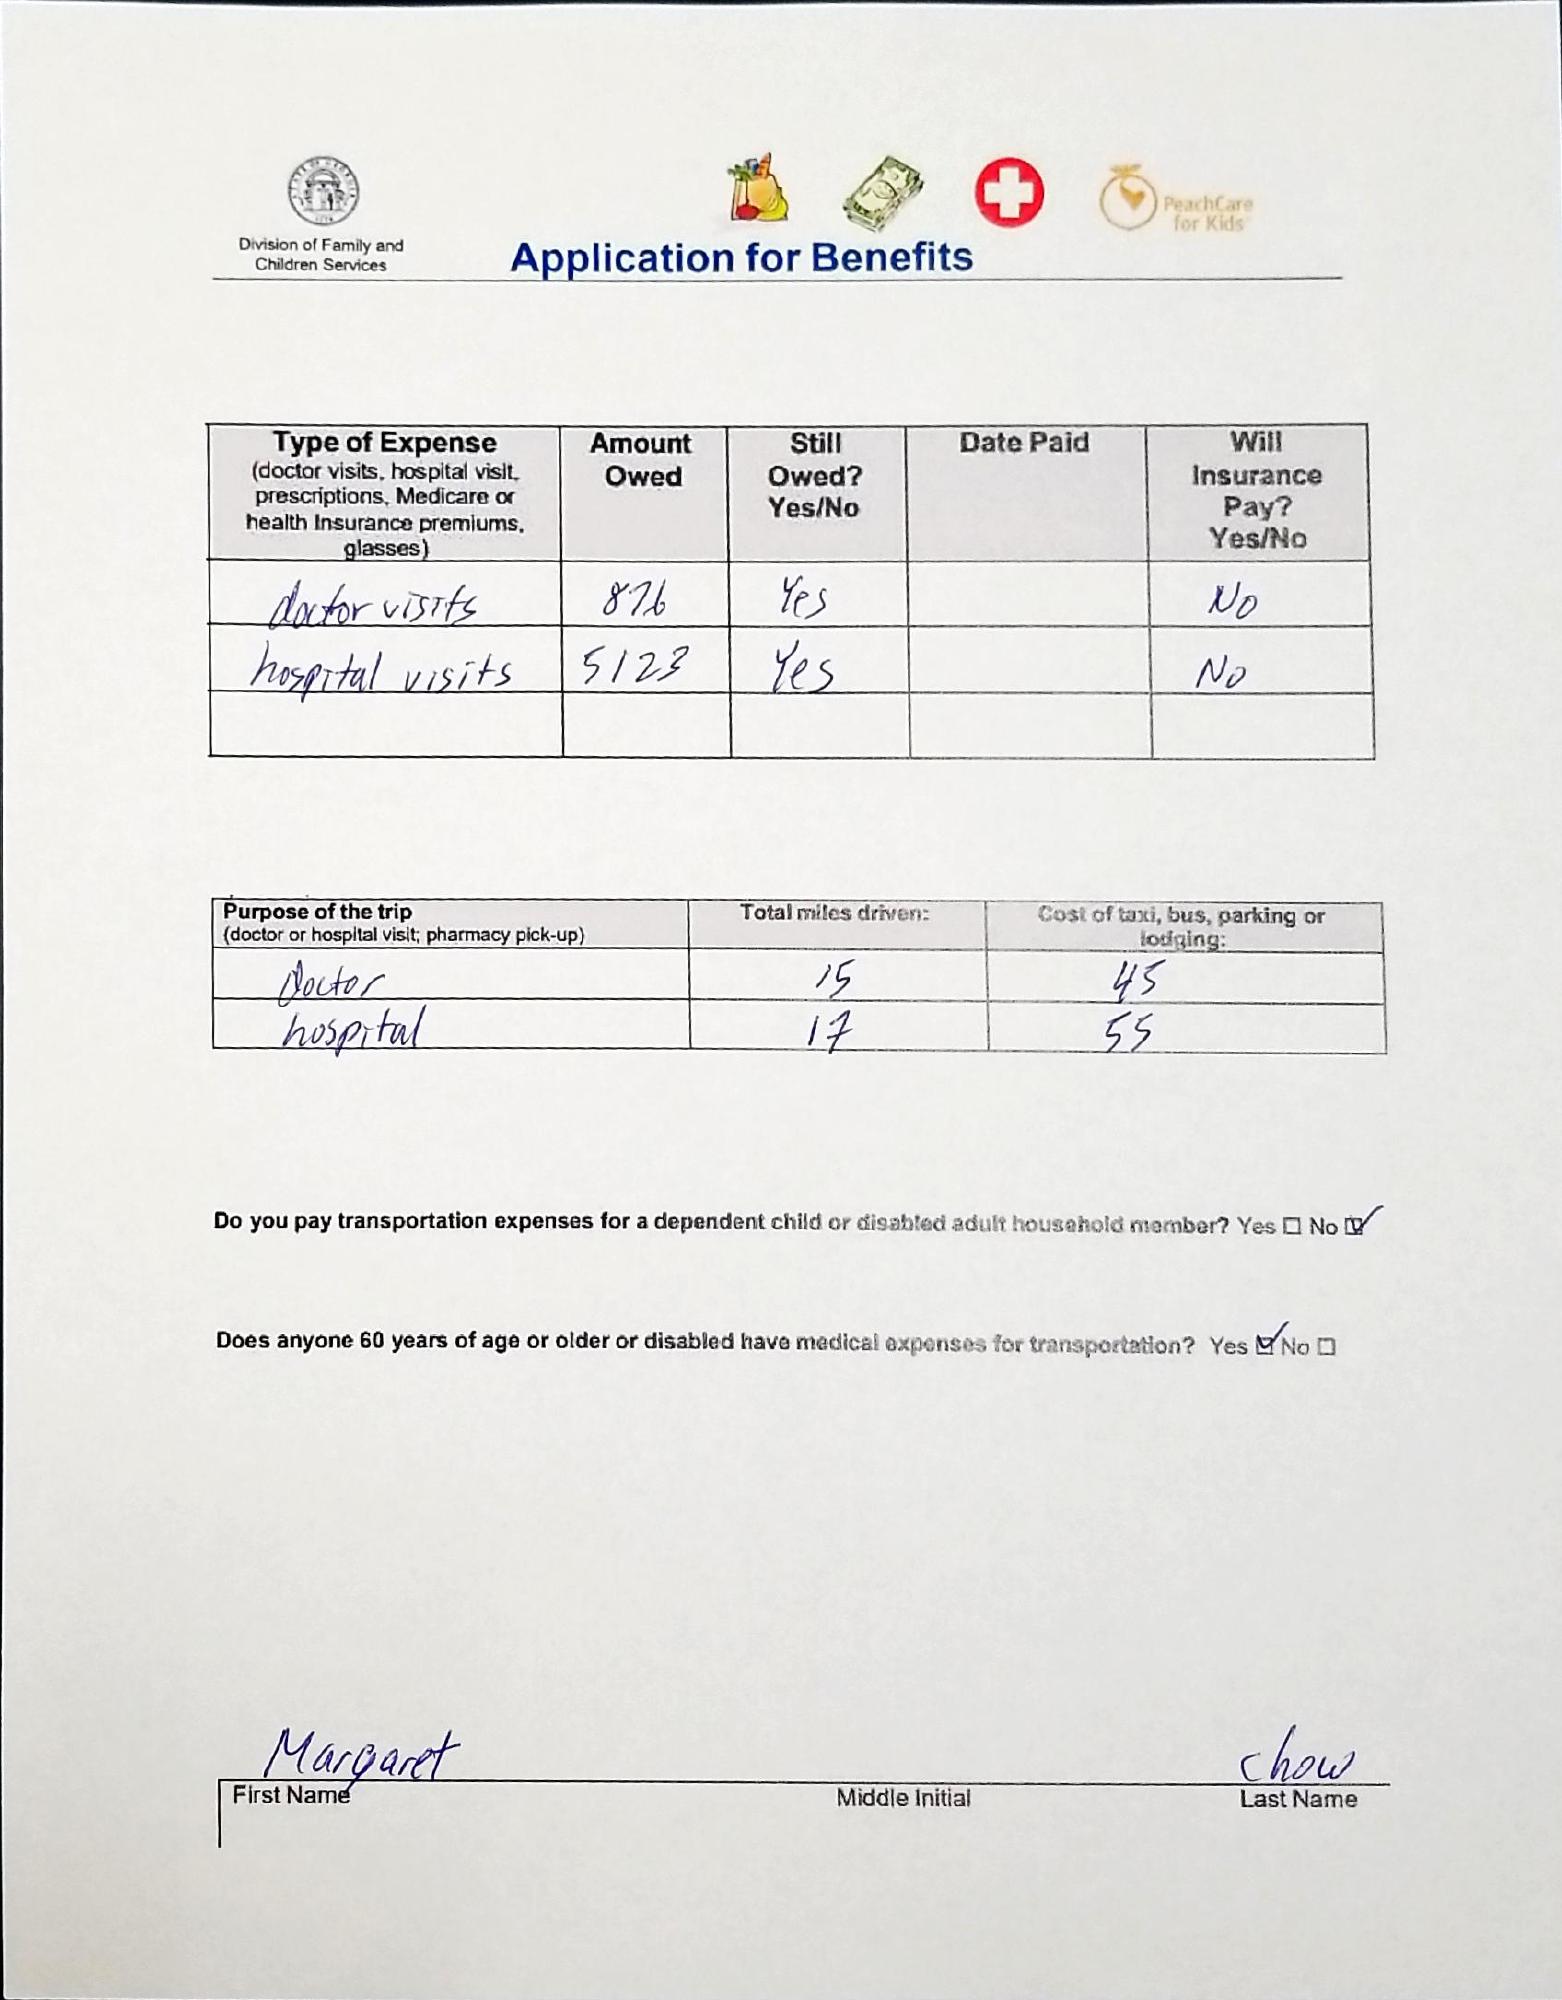 Division of Family and
Children Services
PeachCare
for Kids
Application for Benefits
Type of Expense
(doctor visits, hospital visit,
prescriptions, Medicare or
health Insurance premiums,
glasses)
Amount
Owed
Still
Owed?
Yes/No
Date Paid
Will
Insurance
Pay?
Yes/No
doctor visits 876 Yes No
hospital visits 5123 Yes No
Purpose of the trip
(doctor or hospital visit; pharmacy pick-up)
Total miles driven:
Cost of taxi, bus, parking or
lodging:
Doctor 15 45
hospital 17 55
Do you pay transportation expenses for a dependent child or disabled adult household member? Yes ☐ No ☑
Does anyone 60 years of age or older or disabled have medical expenses for transportation? Yes ☑ No ☐
Margaret chow
First Name Middle Initial Last Name